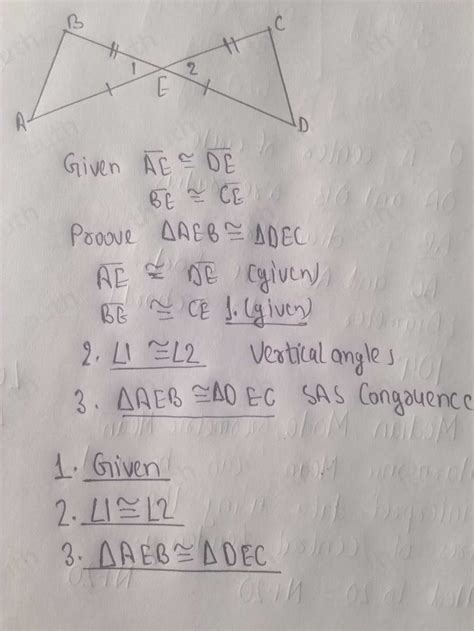 B
C
1
2
E
A
D
Given AE ≅ DE
BE ≅ CE
Proove ΔAEB ≅ ΔDEC
AE ≅ DE (given)
BE ≅ CE 1. (given)
2. ∠1 ≅ ∠2 Vertical angles
3. ΔAEB ≅ ΔDEC SAS Congruence
1. Given
2. ∠1 ≅ ∠2
3. ΔAEB ≅ ΔDEC